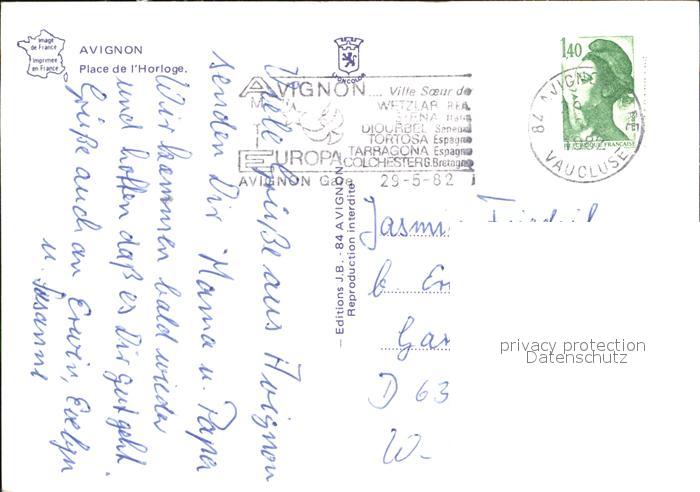 Image
de France
Imprimée
en France
AVIGNON
Place de l'Horloge.
Viele Grüße aus Avignon
senden Dir Mama u. Papa
Wir kommen bald wieder
und hoffen daß es Dir gut geht.
Grüße auch an Erwin, Evelyn
u. Susanne
AVIGNON.... Ville Sœur de
WETZLAR RFA
SIENA Italie
DIOURBEL Sénégal
TORTOSA Espagne
TARRAGONA Espagne
EUROPA COLCHESTER G.Bretagne
AVIGNON Gare 29-5-82
1,40
84 AVIGNON
VAUCLUSE
– Editions J.B. - 84 AVIGNON
Reproduction interdite
Jasmin
b.
Gar
D 63
W-
privacy protection
Datenschutz